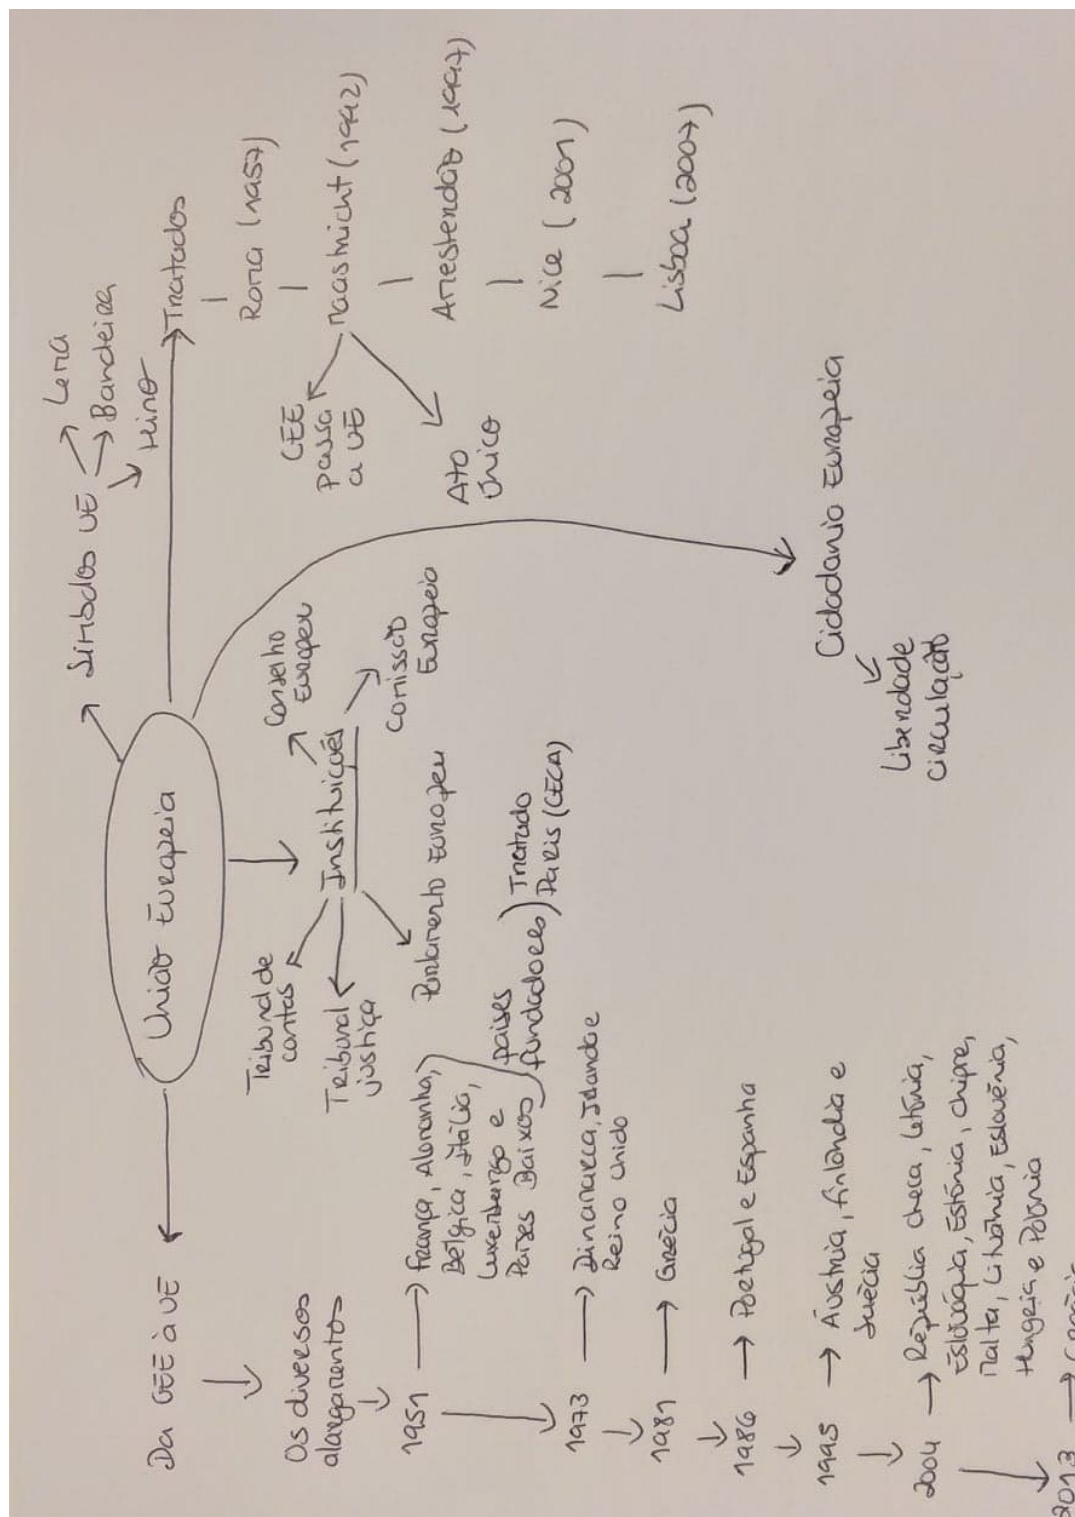 União Europeia
Simbolos UE
Lema
Bandeira
Hino
Tratados
Roma (1957)
Maastricht (1992)
CEE
passa
a UE
Ato
Único
Amesterdão (1997)
Nice (2001)
Lisboa (2007)
Cidadania Europeia
Liberdade
circulação
Instituições
Conselho
Europeu
Comissão
Europeia
Parlamento Europeu
Tribunal
justiça
Tribunal de
contas
Da CEE à UE
Os diversos
alargamentos
1951
França, Alemanha,
Bélgica, Itália,
Luxemburgo e
Países Baixos
países
fundadores
Tratado
Paris (CECA)
1973
Dinamarca, Irlanda e
Reino Unido
1981
Grécia
1986
Portugal e Espanha
1995
Áustria, Finlândia e
Suécia
2004
República checa, Letónia,
Eslováquia, Estónia, Chipre,
Malta, Lituânia, Eslovénia,
Hungria e Polónia
2013